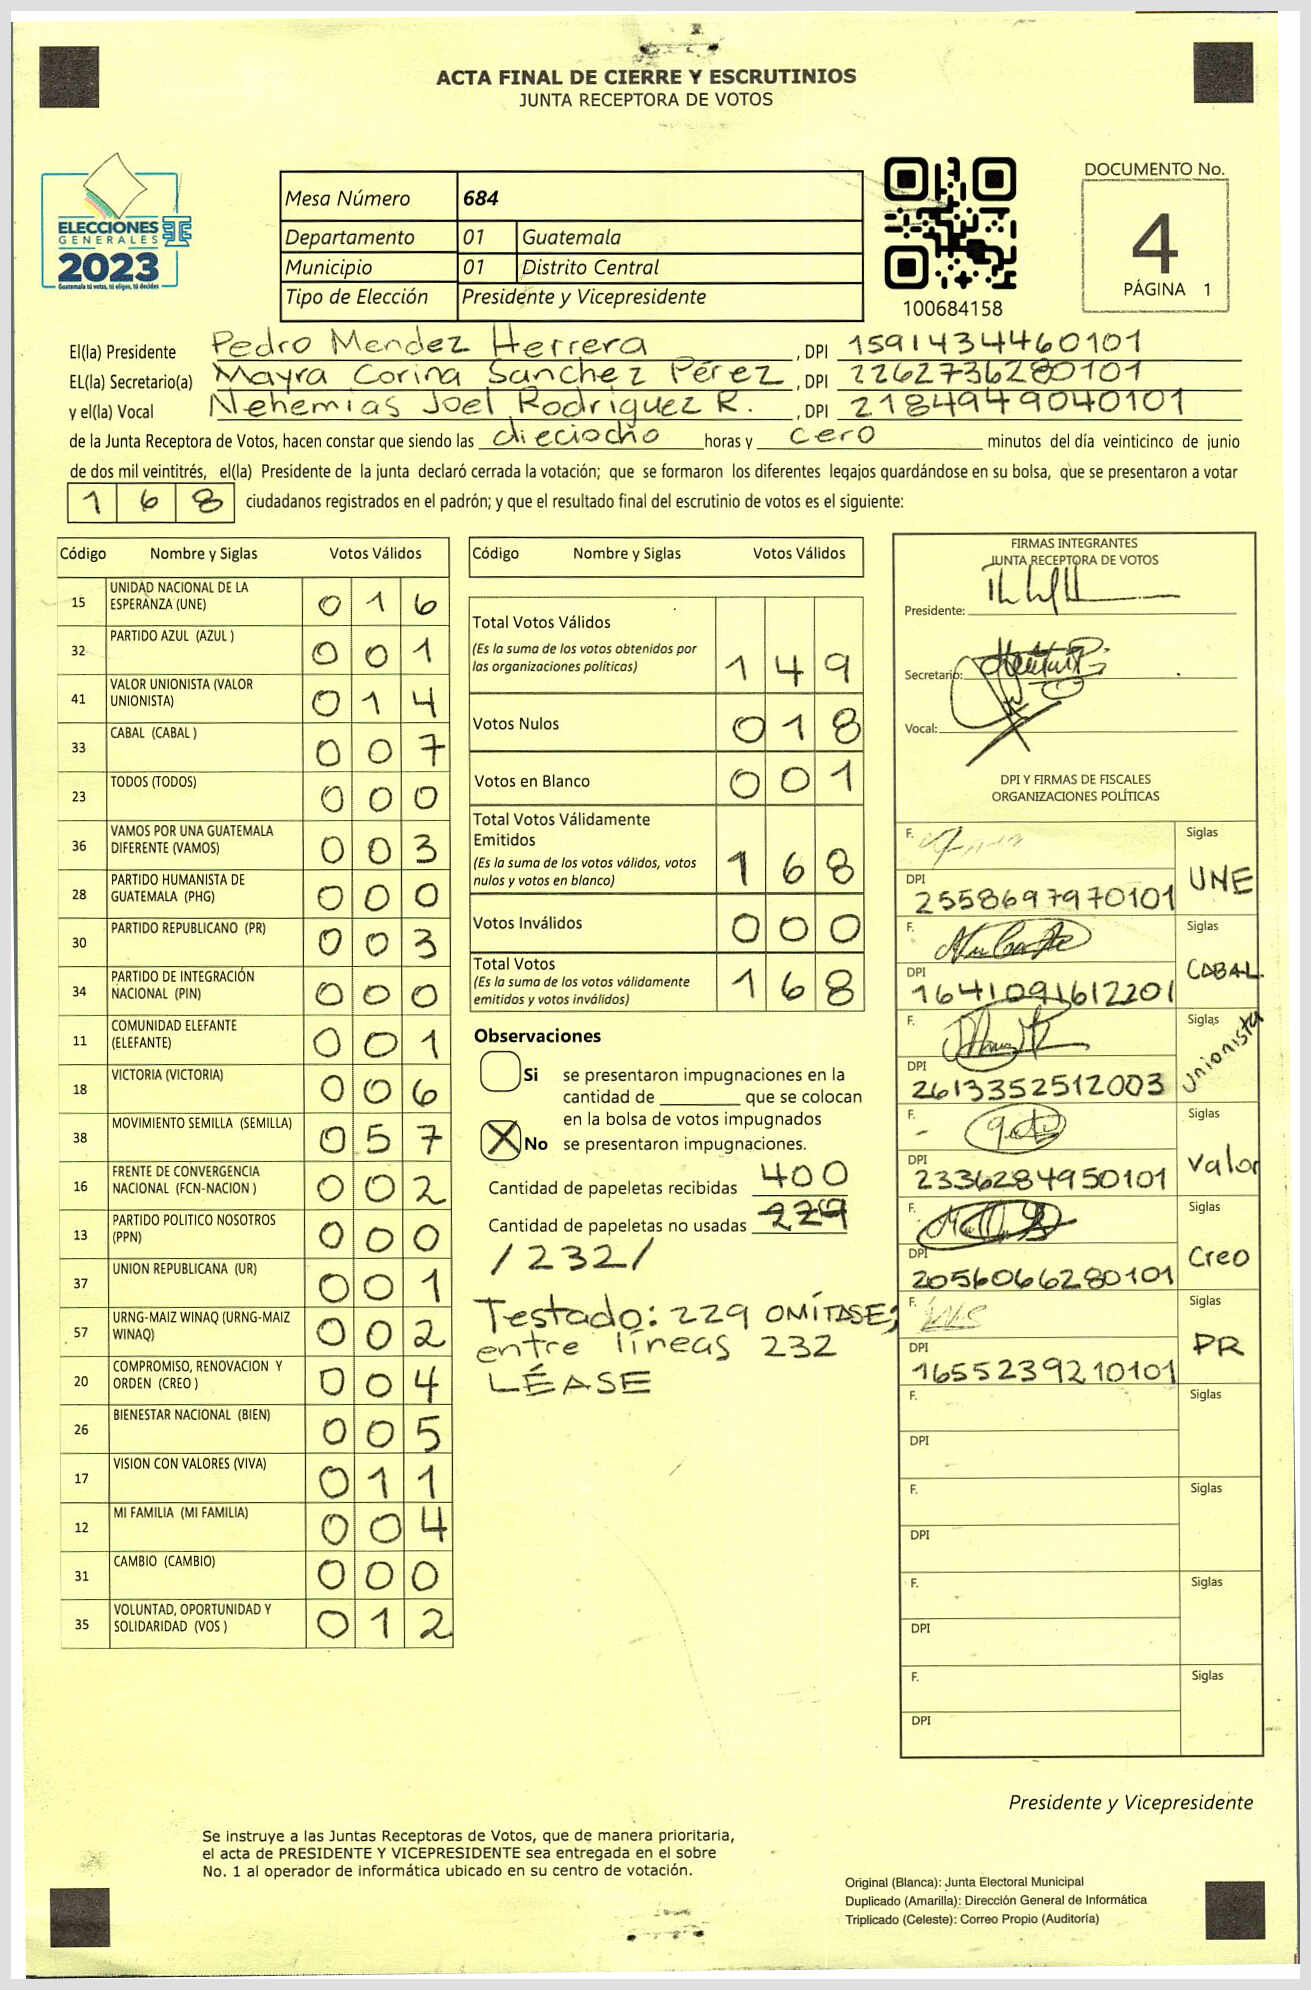 ACTA FINAL DE CIERRE Y ESCRUTINIOS
JUNTA RECEPTORA DE VOTOS
ELECCIONES
GENERALES
2023
Guatemala tú votas, tú eliges, tú decides
Mesa Número 684
Departamento 01 Guatemala
Municipio 01 Distrito Central
Tipo de Elección Presidente y Vicepresidente
100684158
DOCUMENTO No.
4
PÁGINA 1
El(la) Presidente Pedro Mendez Herrera, DPI 1591434460101
EL(la) Secretario(a) Mayra Corina Sanchez Pérez, DPI 2262736280101
y el(la) Vocal Nehemias Joel Rodriguez R., DPI 2184949040101
de la Junta Receptora de Votos, hacen constar que siendo las dieciocho horas y cero minutos del día veinticinco de junio
de dos mil veintitrés, el(la) Presidente de la junta declaró cerrada la votación; que se formaron los diferentes legajos guardándose en su bolsa, que se presentaron a votar
168 ciudadanos registrados en el padrón; y que el resultado final del escrutinio de votos es el siguiente:
Código Nombre y Siglas Votos Válidos
15 UNIDAD NACIONAL DE LA
ESPERANZA (UNE) 016
32 PARTIDO AZUL (AZUL ) 001
41 VALOR UNIONISTA (VALOR
UNIONISTA) 014
33 CABAL (CABAL ) 007
23 TODOS (TODOS) 000
36 VAMOS POR UNA GUATEMALA
DIFERENTE (VAMOS) 003
28 PARTIDO HUMANISTA DE
GUATEMALA (PHG) 000
30 PARTIDO REPUBLICANO (PR) 003
34 PARTIDO DE INTEGRACIÓN
NACIONAL (PIN) 000
11 COMUNIDAD ELEFANTE
(ELEFANTE) 001
18 VICTORIA (VICTORIA) 006
38 MOVIMIENTO SEMILLA (SEMILLA) 057
16 FRENTE DE CONVERGENCIA
NACIONAL (FCN-NACION ) 002
13 PARTIDO POLITICO NOSOTROS
(PPN) 000
37 UNION REPUBLICANA (UR) 001
57 URNG-MAIZ WINAQ (URNG-MAIZ
WINAQ) 002
20 COMPROMISO, RENOVACION Y
ORDEN (CREO ) 004
26 BIENESTAR NACIONAL (BIEN) 005
17 VISION CON VALORES (VIVA) 011
12 MI FAMILIA (MI FAMILIA) 004
31 CAMBIO (CAMBIO) 000
35 VOLUNTAD, OPORTUNIDAD Y
SOLIDARIDAD (VOS ) 012
Código Nombre y Siglas Votos Válidos
Total Votos Válidos
(Es la suma de los votos obtenidos por
las organizaciones políticas) 149
Votos Nulos 018
Votos en Blanco 001
Total Votos Válidamente
Emitidos
(Es la suma de los votos válidos, votos
nulos y votos en blanco) 168
Votos Inválidos 000
Total Votos
(Es la suma de los votos válidamente
emitidos y votos inválidos) 168
Observaciones
Si se presentaron impugnaciones en la
cantidad de ________ que se colocan
en la bolsa de votos impugnados
X No se presentaron impugnaciones.
Cantidad de papeletas recibidas 400
Cantidad de papeletas no usadas 229
/232/
Testado: 229 OMÍTASE;
entre líneas 232
LÉASE
FIRMAS INTEGRANTES
JUNTA RECEPTORA DE VOTOS
Presidente:
Secretario:
Vocal:
DPI Y FIRMAS DE FISCALES
ORGANIZACIONES POLÍTICAS
F. Siglas
DPI 2558697970101 UNE
F. Siglas
DPI 1641091612201 CABAL
F. Siglas
DPI 2613352512003 Unionista
F. Siglas
DPI 2336284950101 Valor
F. Siglas
DPI 2056066280101 Creo
F. Siglas
DPI 1655239210101 PR
F. Siglas
DPI
F. Siglas
DPI
F. Siglas
DPI
F. Siglas
DPI
Presidente y Vicepresidente
Se instruye a las Juntas Receptoras de Votos, que de manera prioritaria,
el acta de PRESIDENTE Y VICEPRESIDENTE sea entregada en el sobre
No. 1 al operador de informática ubicado en su centro de votación.
Original (Blanca): Junta Electoral Municipal
Duplicado (Amarilla): Dirección General de Informática
Triplicado (Celeste): Correo Propio (Auditoría)